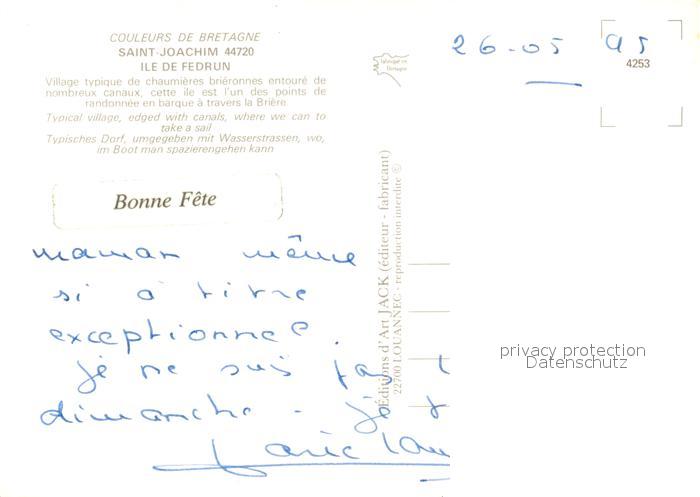 COULEURS DE BRETAGNE
SAINT-JOACHIM 44720
ILE DE FEDRUN
Village typique de chaumières briéronnes entouré de
nombreux canaux, cette ile est l'un des points de
randonnée en barque à travers la Brière
Typical village, edged with canals, where we can to
take a sail
Typisches Dorf, umgegeben mit Wasserstrassen, wo,
im Boot man spazierengehen kann
fabriqué en
Bretagne
26-05 95
4253
Bonne Fête
maman même
si à titre
exceptionnel.
je ne suis pas
dimanche. je
Éditions d'Art JACK (éditeur - fabricant)
22700 LOUANNEC - reproduction interdite ©
privacy protection
Datenschutz